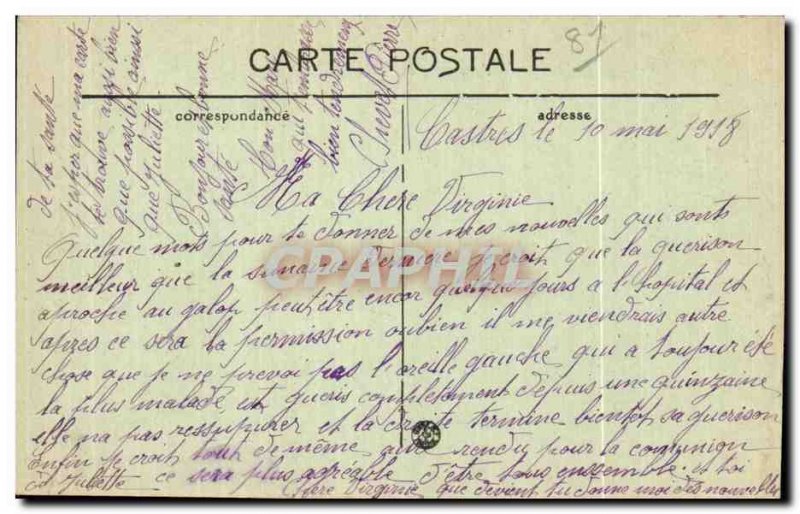 CARTE POSTALE
correspondance
adresse
81
Castres le 10 mai 1918
Ma Chere Virginie
Quelque mots pour te donner de mes nouvelles qui sonts
meilleur que la semaine je croit que la guerison
aproche au galop peut être encor quelque jours a l'hopital et
apres ce sera la permission oubien il me viendrais autre
chose que je ne prevoi pas l'oreille gauche qui a toujour été
la plus malade est gueris completement depuis une quinzaine
elle na pas ressuppurer et la droite termine bientot sa guerison
Enfin je croit tout de même rendu pour la communion
de Juliette ce sera plus agréable d'être tous ensemble et toi
Chère Virginie que devient tu donne moi des nouvelles
de ta santé
j'espèr que ma carte
te trouve aussi bien
que possible ainsi
que Juliette
Bonjour et bonne
santé
Ton
qui
bien tendrement
Pierre
CPAPHIL